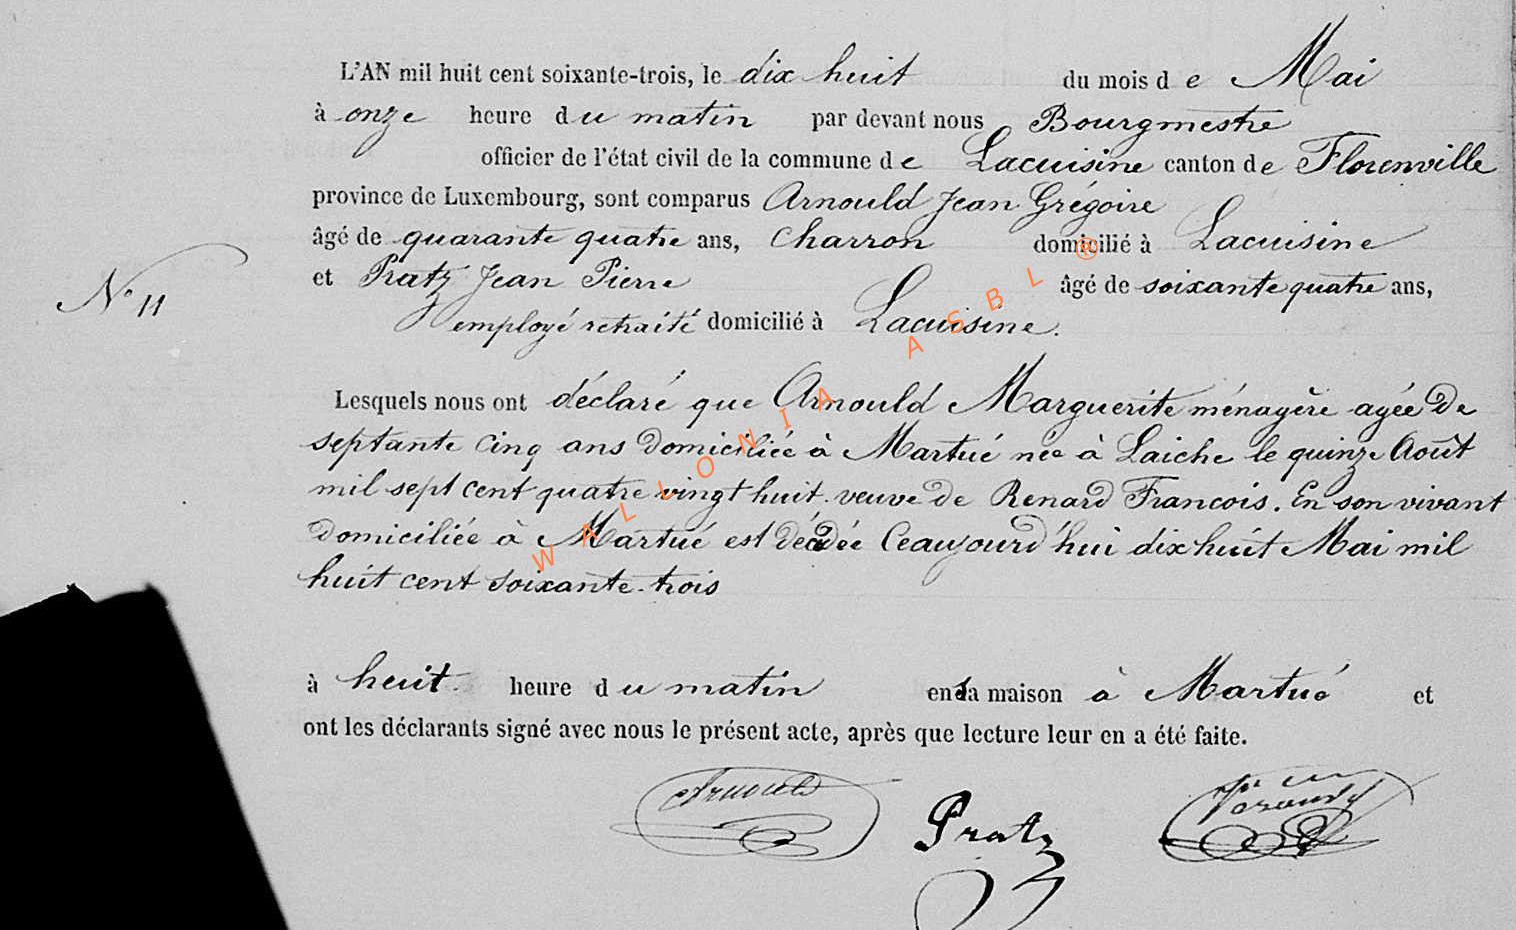 L'AN mil huit cent soixante-trois, le dix huit du mois de Mai
à onze heure du matin par devant nous Bourgmestre
officier de l'état civil de la commune de Lacuisine canton de Florenville
province de Luxembourg, sont comparus Arnould Jean Grégoire
âgé de quarante quatre ans, Charron domicilié à Lacuisine
et Pratz Jean Pierre âgé de soixante quatre ans,
No 11
employé retraité domicilié à Lacuisine.
Lesquels nous ont déclaré que Arnould Marguerite ménagère agée de
septante cinq ans domiciliée à Martué née à Laiche le quinze Août
mil sept cent quatre vingt huit. veuve de Renard Francois. En son vivant
domiciliée à Martué est décédée Ceaujourd'hui dix huit Mai mil
huit cent soixante-trois
à huit heure du matin en sa maison à Martué et
ont les déclarants signé avec nous le présent acte, après que lecture leur en a été faite.
Arnould Pratz
WALLONIA ASBL ®